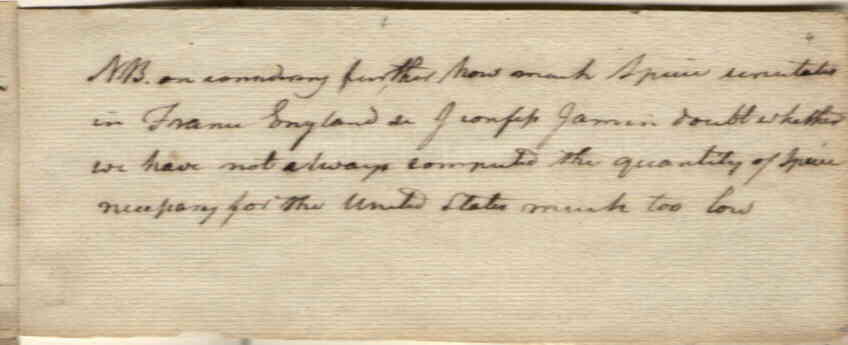 NB. on considering further how much Specie circulates
in France England &c I confess I am in doubt whether
we have not always computed the quantity of Specie
necessary for the United States much too low